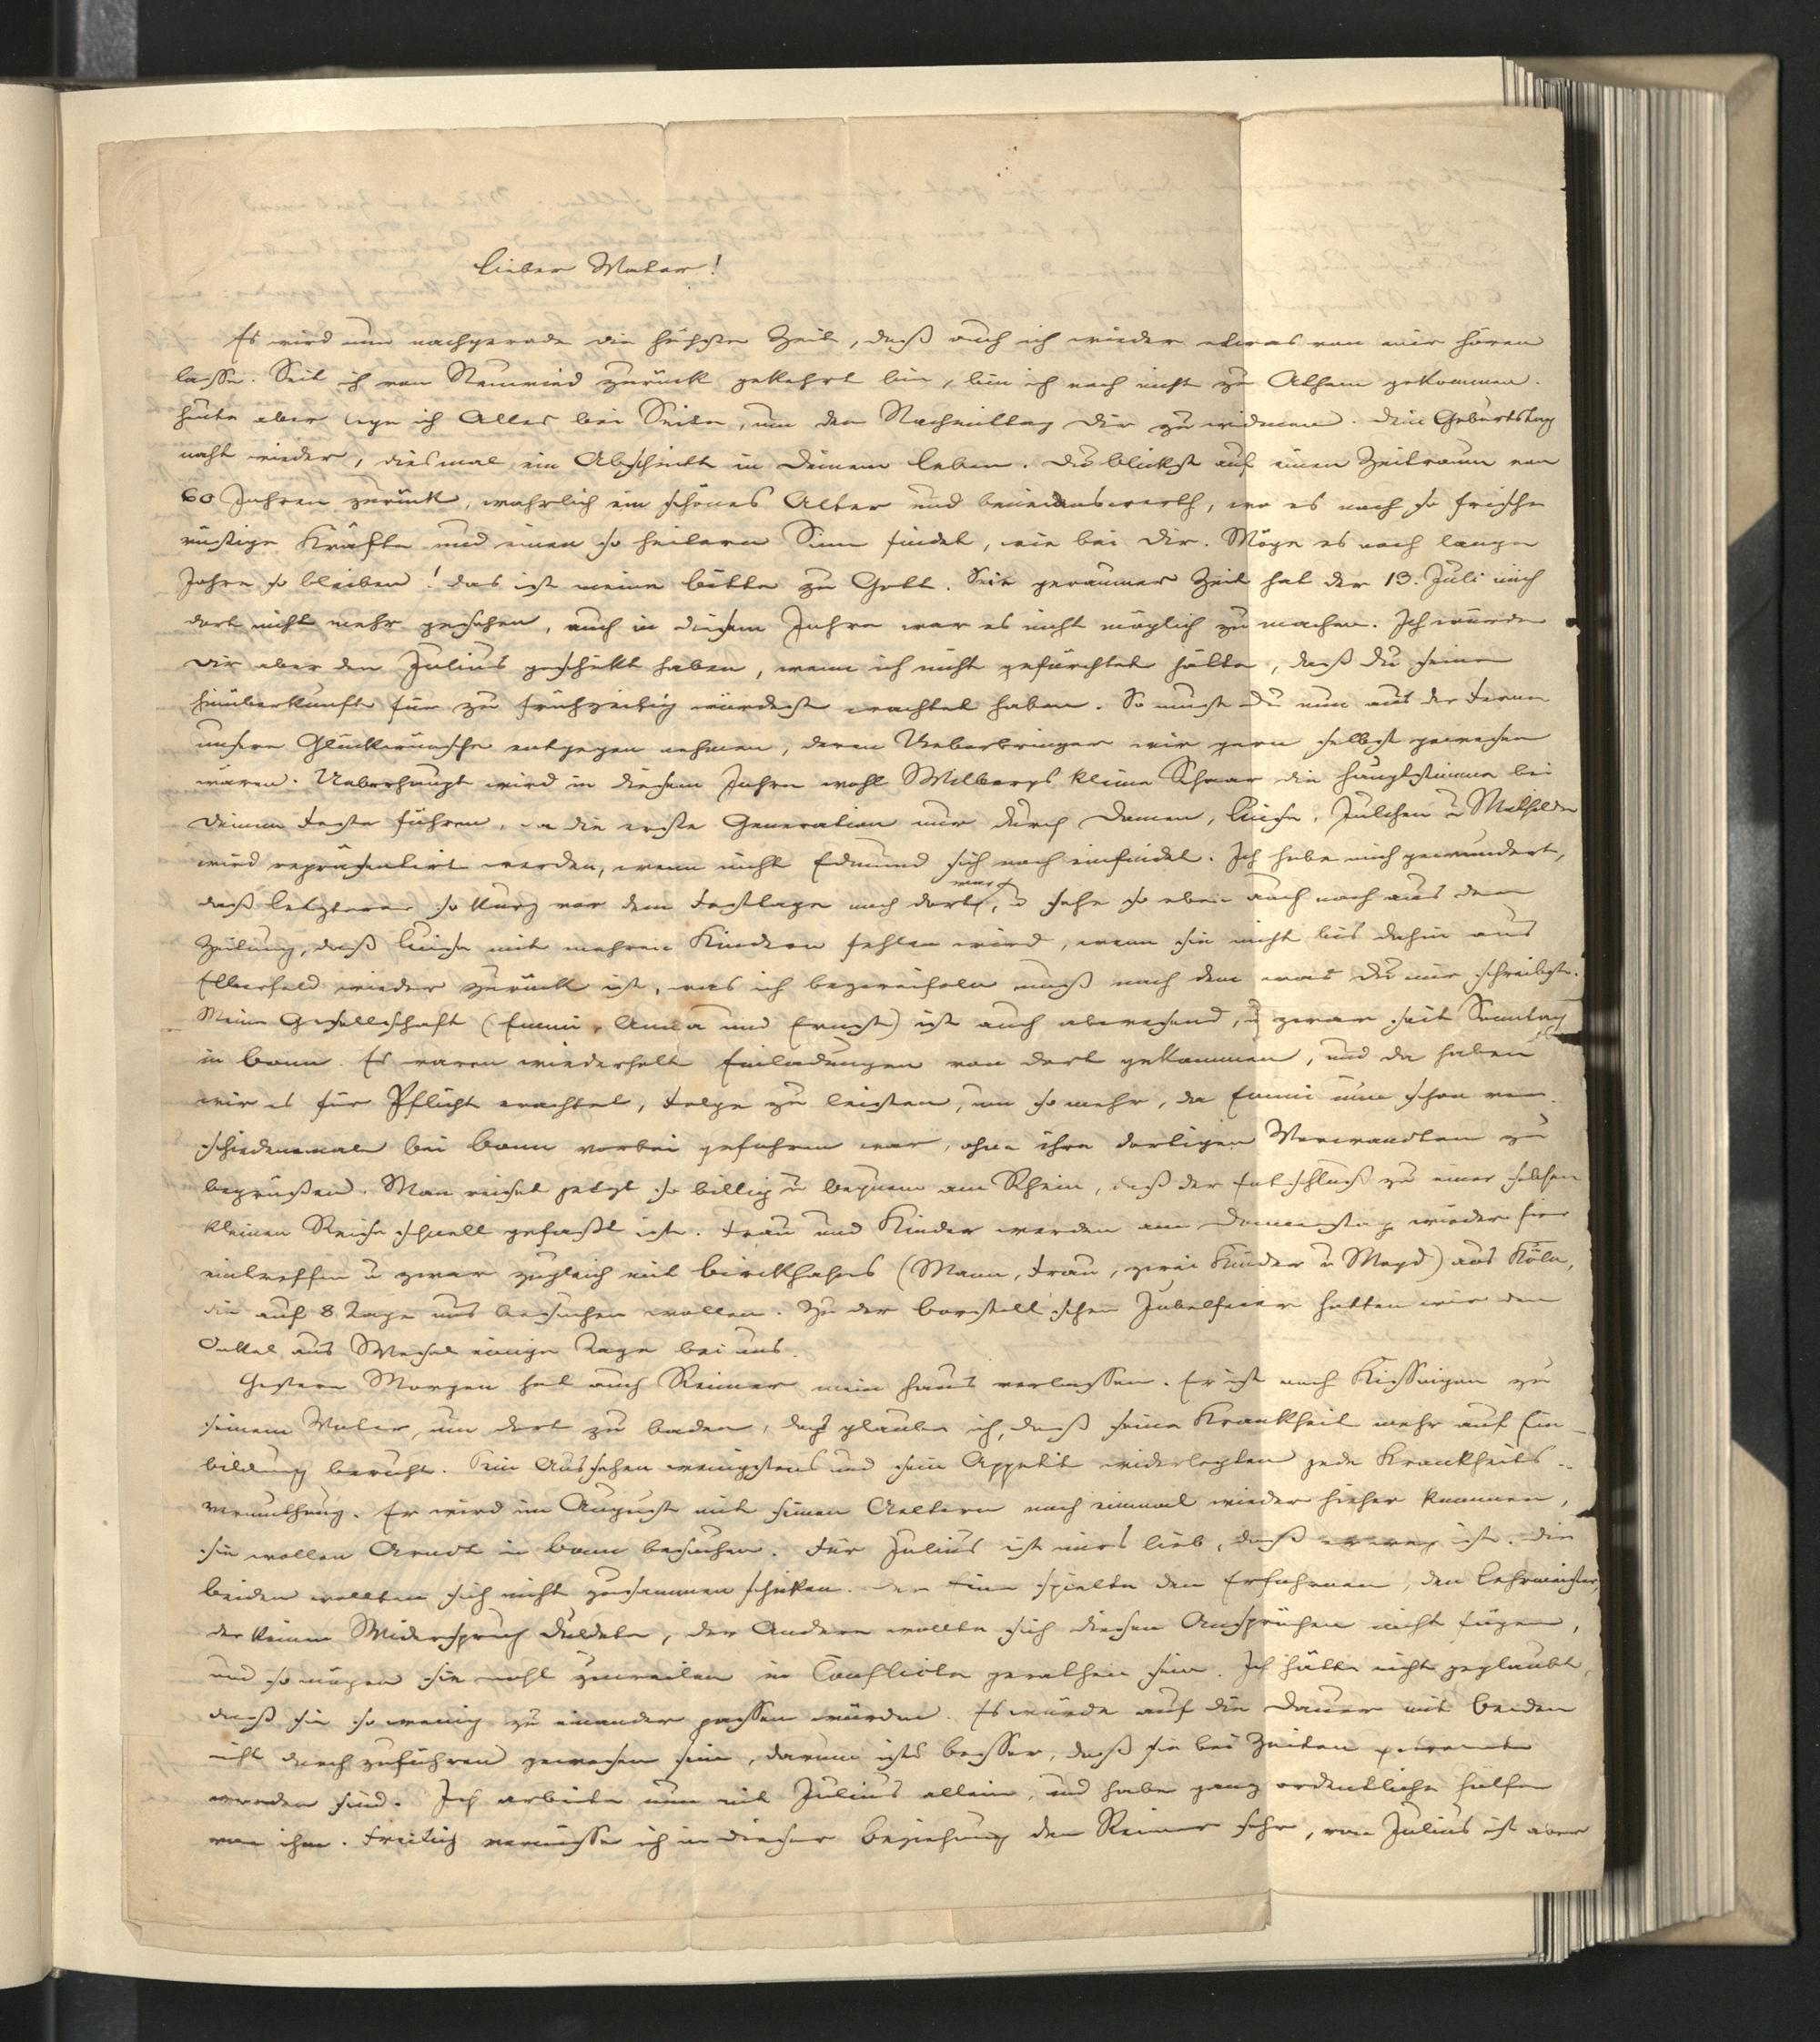 Lieber Vater!
Es wird nun nachgerade die höchste Zeit, daß auch ich wieder etwas von mir hören
lasse. Seit ich von Neuwied zurück gekehrt bin, bin ich noch nicht zu Athem gekommen.
Heute aber lege ich Alles bei Seite, um den Nachmittag Dir zu widmen. Dein Geburtstag
naht wieder, diesmal ein Abschnitt in Deinem Leben. Du blickst auf einen Zeitraum von
60 Jahren zurück, wahrlich ein schönes Alter und beneidenswerth, wo es noch so frische
rüstige Kräfte und einen so heitern Sinn findet, wie bei Dir. Möge es noch lange
Jahre so bleiben! das ist meine bitte zu Gott. Seit geraumer Zeit hat der 13. Juli mich
dort nicht mehr gesehen, auch in diesem Jahre war es nicht möglich zu machen. Ich würde
Dir aber den Julius geschikt haben, wenn ich nicht gefürchtet hätte, daß Du seine
Hinüberkunft für zu frühzeitig würdest erachtet haben. So must Du nun aus der Ferne
unsere Glückwünsche entgegen nehmen, deren Ueberbringer wir gern selbst gewesen
wären. Ueberhaupt wird in diesem Jahre wohl Wilbergs kleine Schaar die Hauptstimme bei
Deinem Feste führen, da die erste Generation nur durch Damen, Luise, Julchen u Mathilde
wird repräsentirt werden, wenn nicht Edmund sich noch einfindet. Ich habe mich gewundert,
daß letzterer so kurz vor dem Festtage noch dort war, u sehe so eben auch noch aus dem
Zeitung, daß Luise mit mehren Kindern fehlen wird, wenn sie nicht bis dahin aus
Elberfeld wieder zurück ist, was ich bezweifeln muß nach dem was Du mir schreibst.
Meine Gesellschaft (Emmi, Anna und Ernst) ist auch abwesend, u zwar seit Sonntag
in Bonn. Es waren wiederholt Einladungen von dort gekommen, und da haben
wir es für Pflicht erachtet, Folge zu leisten, um so mehr, da Emmi nun schon ver-
schiedenemale bei Bonn vorbei gefahren war, ohne ihre dortigen Verwandten zu
begrüßen. Man reiset jetzt so billig u bequem am Rhein, daß der Entschluß zu einer solchen
kleinen Reise schnell gefaßt ist. Frau und Kinder werden am Donnerstag wieder hier
eintreffen u zwar zugleich mit Birckhahns (Mann, Frau, zwei Kinder u Magd) aus Köln,
die auf 8 Tage uns besuchen wollen. Zu der Borstell'schen Jubelfeier hatten wir den
Onkel aus Wesel einige Tage bei uns.
Gestern Morgen hat auch Reimer mein Haus verlassen. Er ist nach Kissingen zu
seinem Vater, um dort zu baden, doch glaube ich, daß seine Krankheit mehr auf Ein-
bildung beruht. Sein Aussehen wenigstens und sein Appetit widerlegten jede Krankheits-
vermuthung. Er wird im August mit seinen Aeltern noch einmal wieder hieher kommen,
sie wollen Arndt in Bonn besuchen. Für Julius ist mirs lieb, daß er weg ist. Die
beiden wollten sich nicht zusammen schicken. Der Eine spielte den Erfahrnen, den Lehrmeister,
der keinen Widerspruch duldete, der Andere wollte sich diesen Ansprüchen nicht fügen,
und so mögen sie wohl zuweilen in Conflicte gerathen sein. Ich hätte nicht geglaubt,
daß sie so wenig zu einander passen würden. Es würde auf die Dauer mit beiden
nicht durchzuführen gewesen sein, darum ists besser, daß sie bei Zeiten getrennt
worden sind. Ich arbeite nun mit Julius allein, und habe ganz ordentliche Hülfe
von ihm. Freilich vermisse ich in dieser Beziehung den Reimer sehr, von Julius ist aber